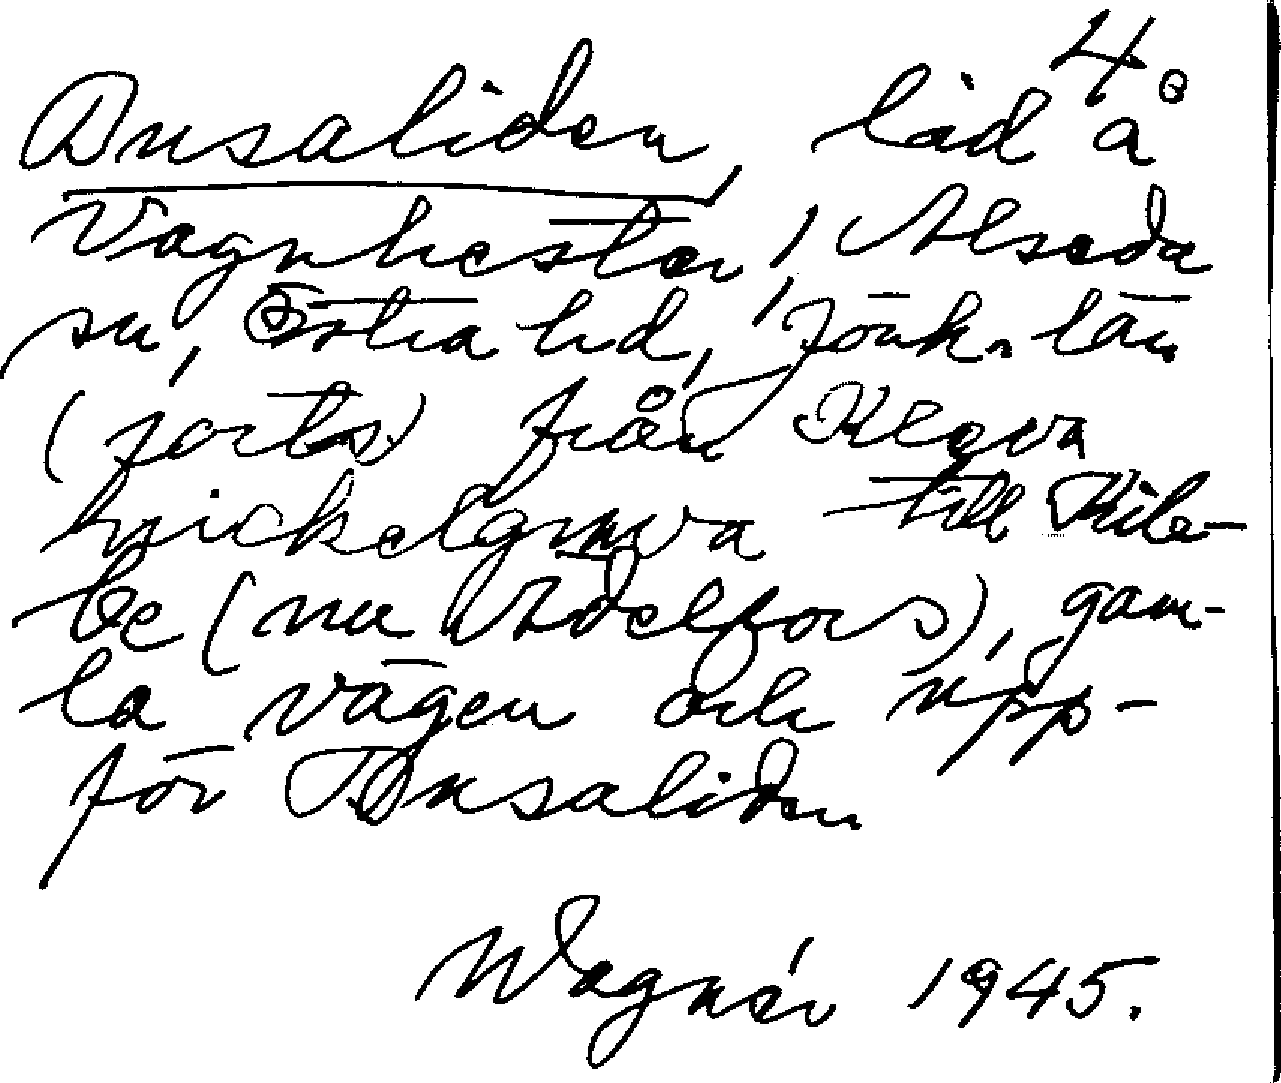 4.
Dusaliden, lid å
Vagnhester, Alseda
sn, Östra hd, Jönk. län
(forts) från Kleva
nickelgruva till Kile-
be (nu Ädelfors), gam-
la vägen och upp-
för Dusaliden
Wagnér 1945.